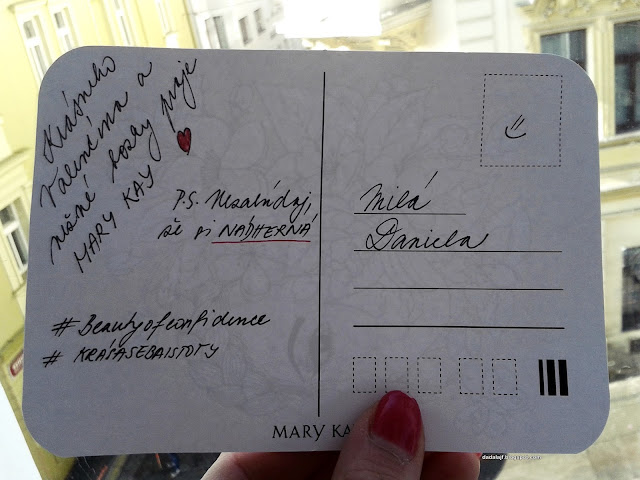 Krásneho
Valentína a
nežné bozky praje
MARY KAY
P.S. Nezabúdaj,
že si NÁDHERNÁ
#Beautyofconfidence
#KRÁSASEBAISTOTY
Milá
Daniela
MARY KA
dadalajf.blogspot.com